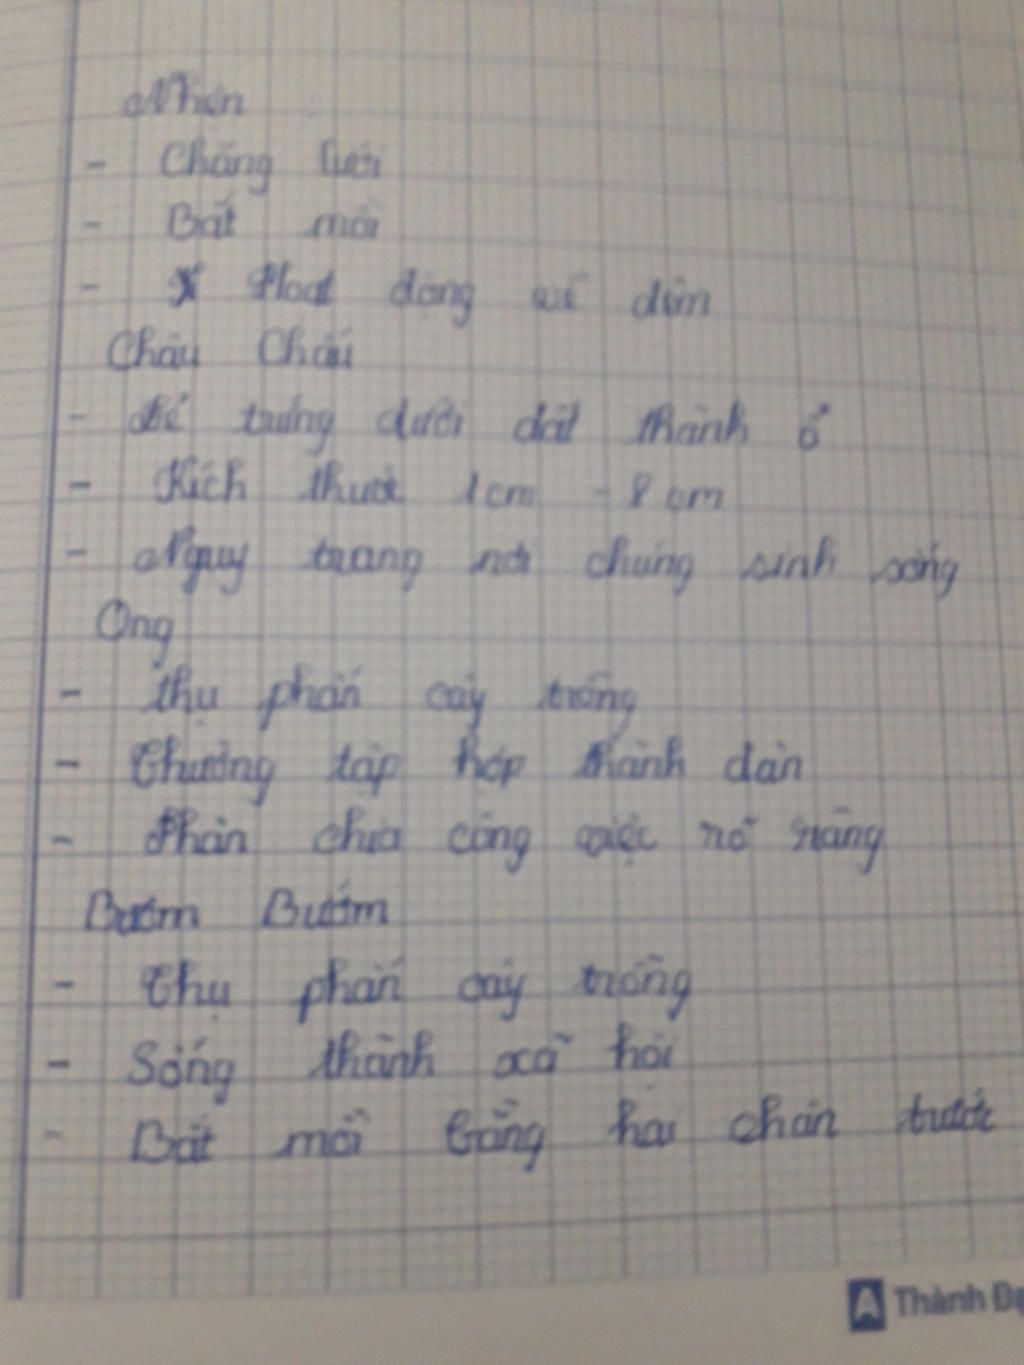 Nhện
- Chăng lưới
- Bắt mồi
- Hoạt động về đêm
Châu Chấu
- Đẻ trứng dưới đất thành ổ
- Kích thước 1cm - 8 cm
- Ngụy trang nơi chúng sinh sống
Ong
- Thụ phấn cây trồng
- Thường tập hợp thành đàn
- Phân chia công việc rõ ràng
Bươm Bướm
- Thụ phấn cây trồng
- Sống thành xã hội
- Bắt mồi bằng hai chân trước
Thành Đạ